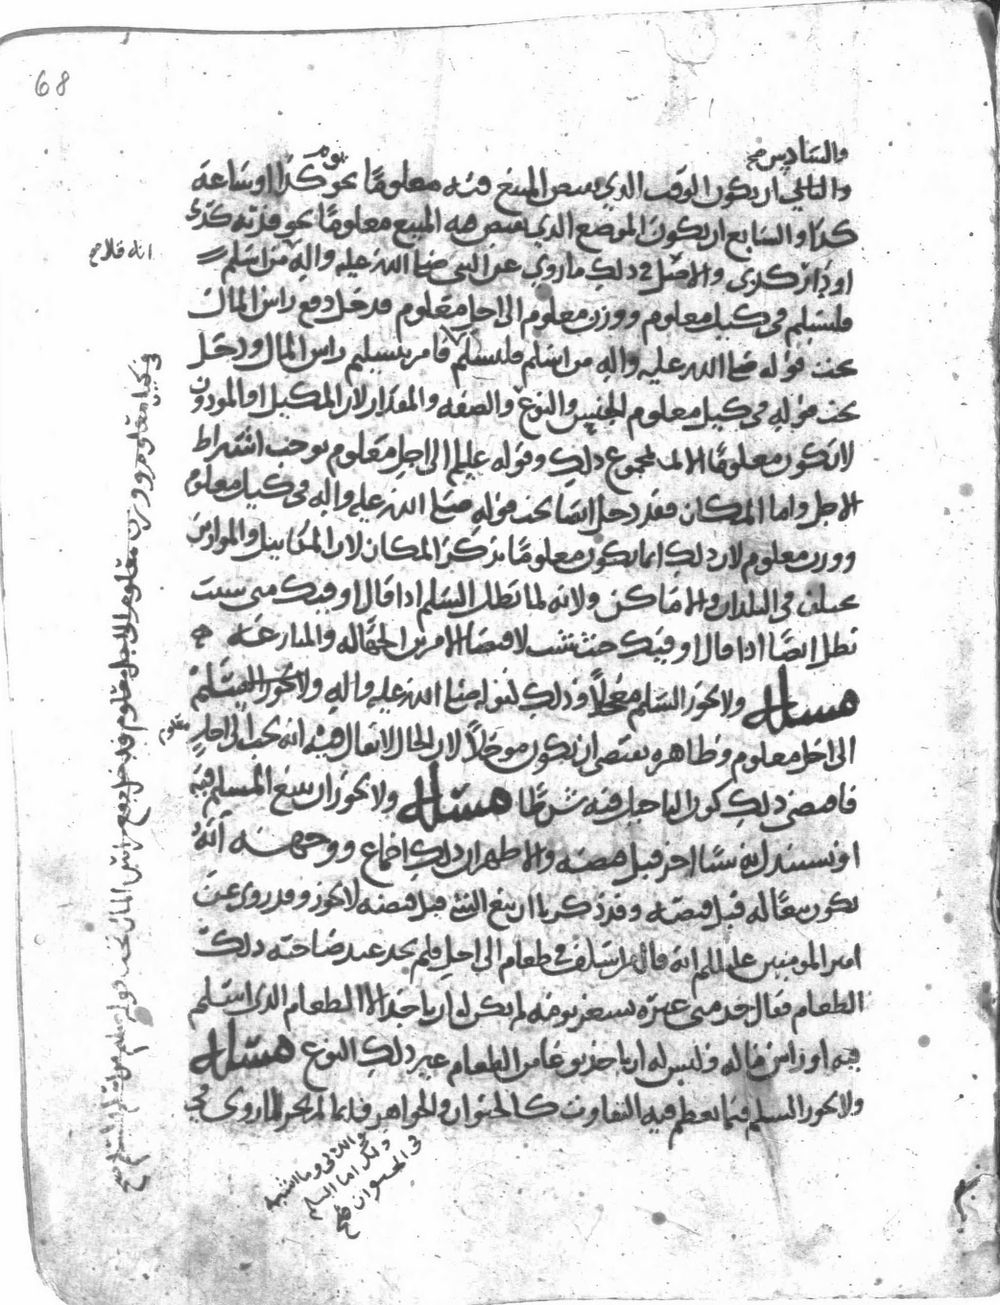 68
والسادس صح
والثاني ان يكون الوقت الذي يقبض المبيع فيه معلوما نحو يوم كذا او ساعة
كذا والسابع ان يكون الموضع الذي يقبض فيه المبيع معلوما نحو قرية كذى
او دار كذى والاصل في ذلك ما روي عن النبي صلى الله عليه واله من اسلم
انه قال صح
فليسلم في كيل معلوم ووزن معلوم الى اجل معلوم فدخل دفع راس المال
تحت قوله صلى الله عليه واله من اسلم فليسلم فامر بتسليم راس المال ودخل
تحت قوله في كيل معلوم الجنس والنوع والصفه والمقدار لان المكيل او الموزون
لا يكون معلوما الا بمجموع ذلك وقوله عليلم الى اجل معلوم يوجب اشتراط
الاجل واما المكان فقد دخل ايضا تحت قوله صلى الله عليه واله في كيل معلوم
ووزن معلوم لان ذلك انما يكون معلوما بذكر المكان لان المكاييل والموازين
تختلف في البلدان والاماكن ولانه لما بطل السلم اذا قال اوفيك متى شيت
بطل ايضا اذا قال اوفيك حيث شيت لاقتضا الامرين الجهاله والمنازعه
مسله ولا يجوز السلم معجلا وذلك لقوله صلى الله عليه واله ولا يجوز السلم
الى اجل معلوم وظاهره يقتضي ان يكون موجلا لان الحال لا يقال فيه انه يجب الى اجل
معلوم
فاقتضى ذلك كون التاجيل فيه شرطا مسله ولا يجوز ان يبيع المسلم فيه
او يستبدل به شيا اخر قبل قبضه والاظهر ان ذلك اجماع ووجهه انه
يكون بيعا له قبل قبضه وقد ذكرنا ان بيع الشي قبل قبضه لا يجوز وقد روي عن
امير المومنين عليلم انه قال من اسلف في طعام الى اجل فلم يجد عند صاحبه ذلك
الطعام فقال خذ مني غيره بسعر يومه لم يكن له ان ياخذ الا الطعام الذي اسلم
فيه او راس ماله وليس له ان ياخذ نوعا من الطعام غير ذلك النوع مسله
ولا يجوز السلم فيما يعظم فيه التفاوت كالحيوان والجواهر وانما لم يجز لما روي في
في كيل معلوم ووزن معلوم الى اجل معلوم فدخل دفع راس المال تحت قوله
واللالي وما اشبه
ذلك اما السلم
في الحيوان صح